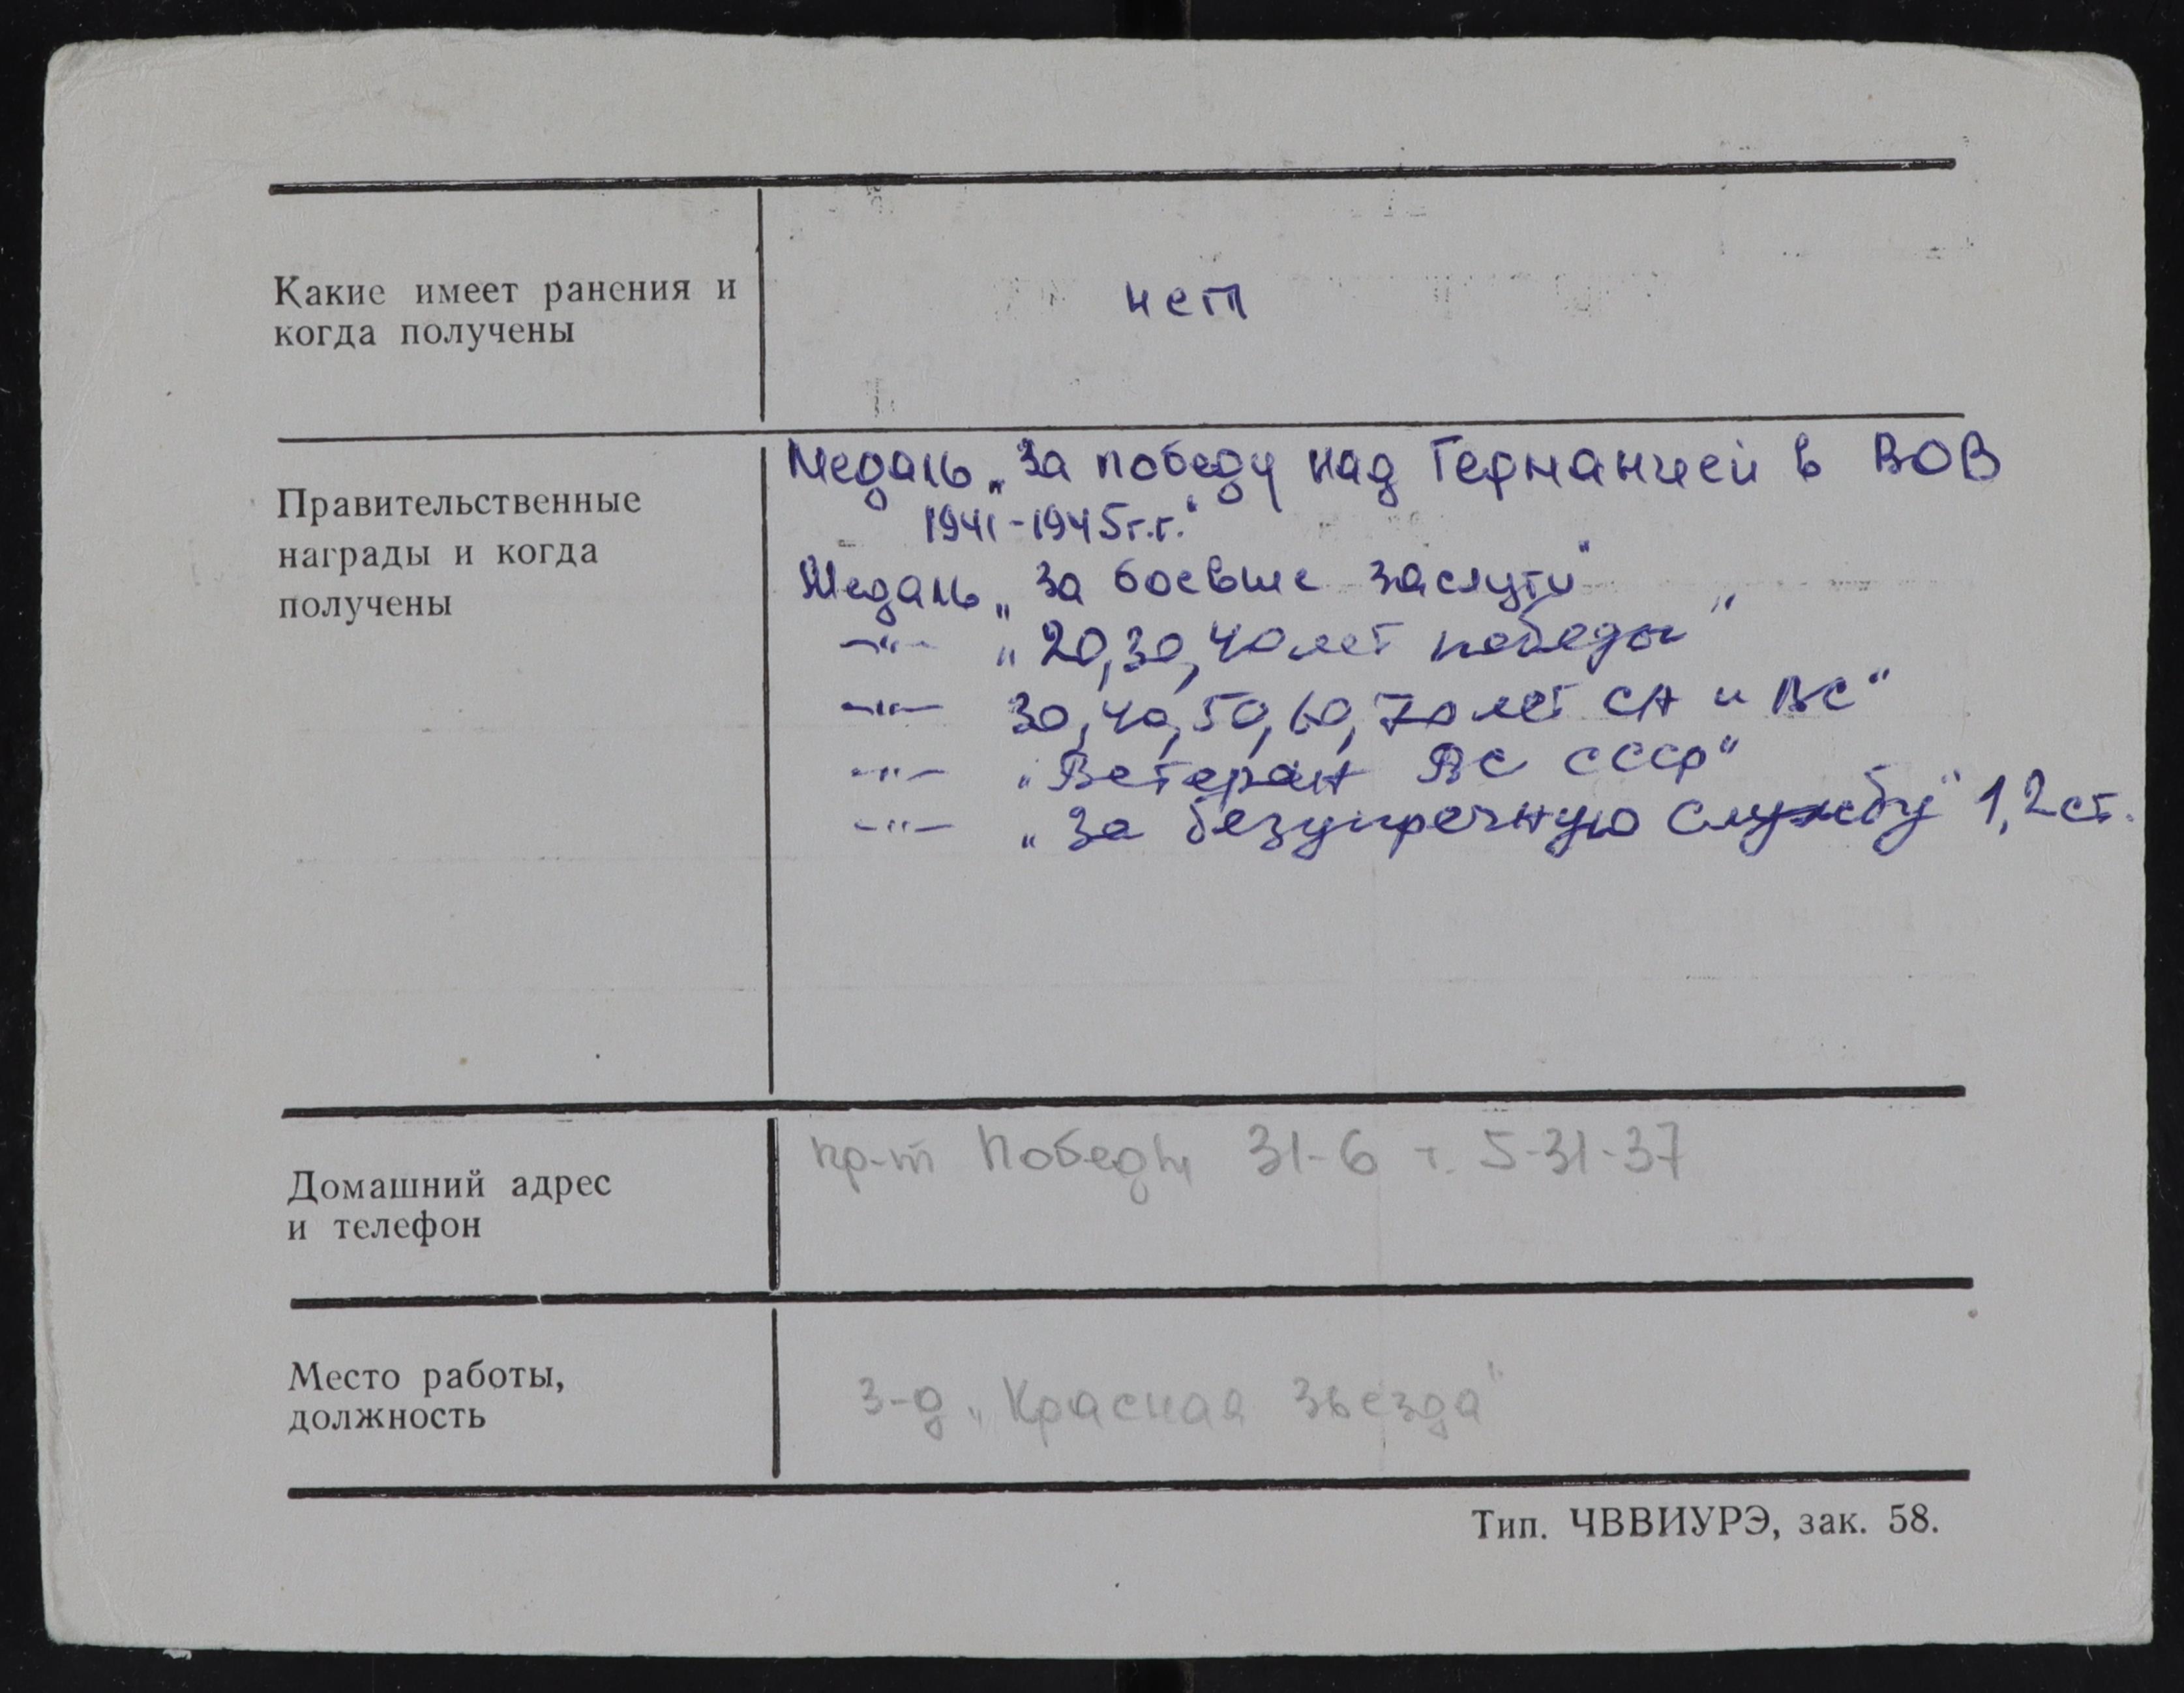 Какие имеет ранения и
когда получены
нет
Правительственные
награды и когда
получены
Медаль „За победу над Германией в ВОВ
1941-1945г.г."
Медаль „За боевые заслуги"
—"— „20,30,40 лет победы"
—"— 30,40,50,60,70 лет СА и ВС"
—"— „Ветеран ВС СССР"
—"— „За безупречную службу" 1,2 ст.
Домашний адрес
и телефон
пр-т Победы 31-6 т. 5-31-37
Место работы,
должность
з-д „Красная Звезда"
Тип. ЧВВИУРЭ, зак. 58.